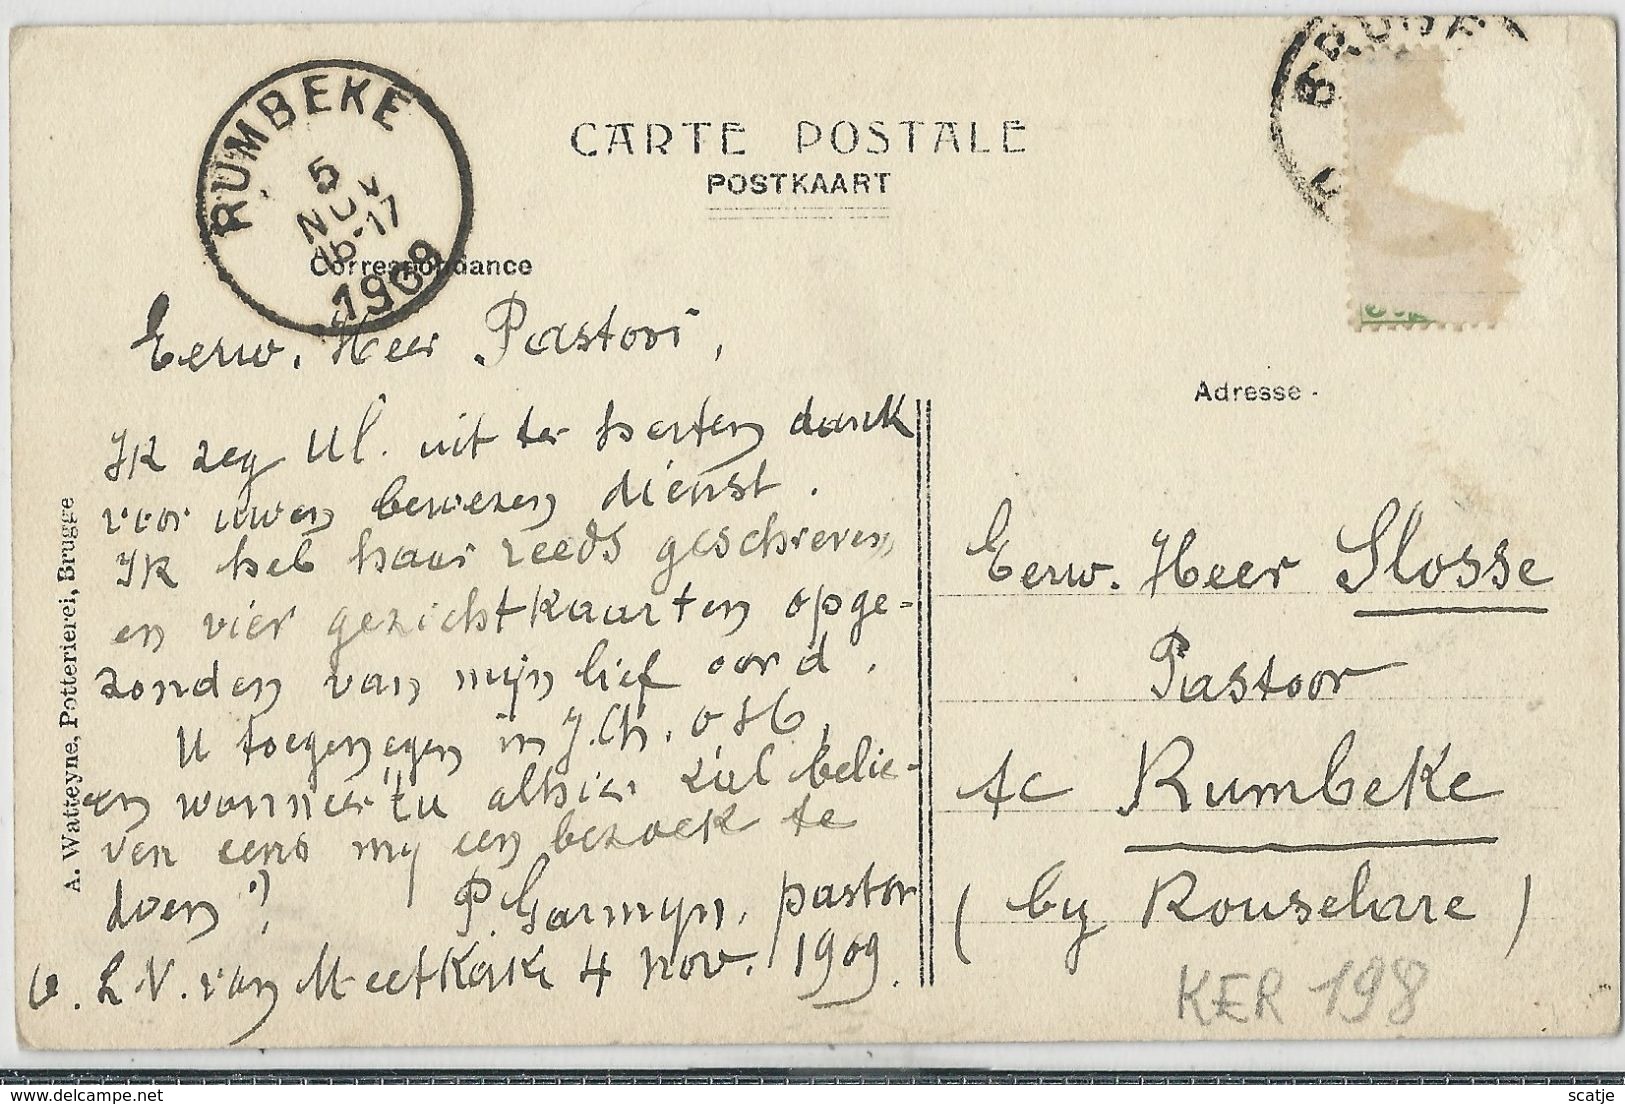 RUMBEKE
5
NOV
16-17
1909
BRUGGE
CARTE POSTALE
POSTKAART
Correspondance
Eerw. Heer Pastoor,
Ik zeg Ul. uit ter herten dank
voor uwen bewezen dienst.
Ik heb haar reeds geschreven
en vier gezichtkaarten opge-
zonden van mijn lief oord.
U toegenegen in J. Ch.
en wanneer 't u alhier zal belie-
ven eens my een bezoek te
doen?
P. Garmyn, pastor
O. L. V. van Meetkerke 4 nov. 1909.
A. Watteyne, Potterierei, Brugge
Adresse
Eerw. Heer Slosse
Pastoor
te Rumbeke
(by Rousselare)
KER 198
delcampe.net
scatje